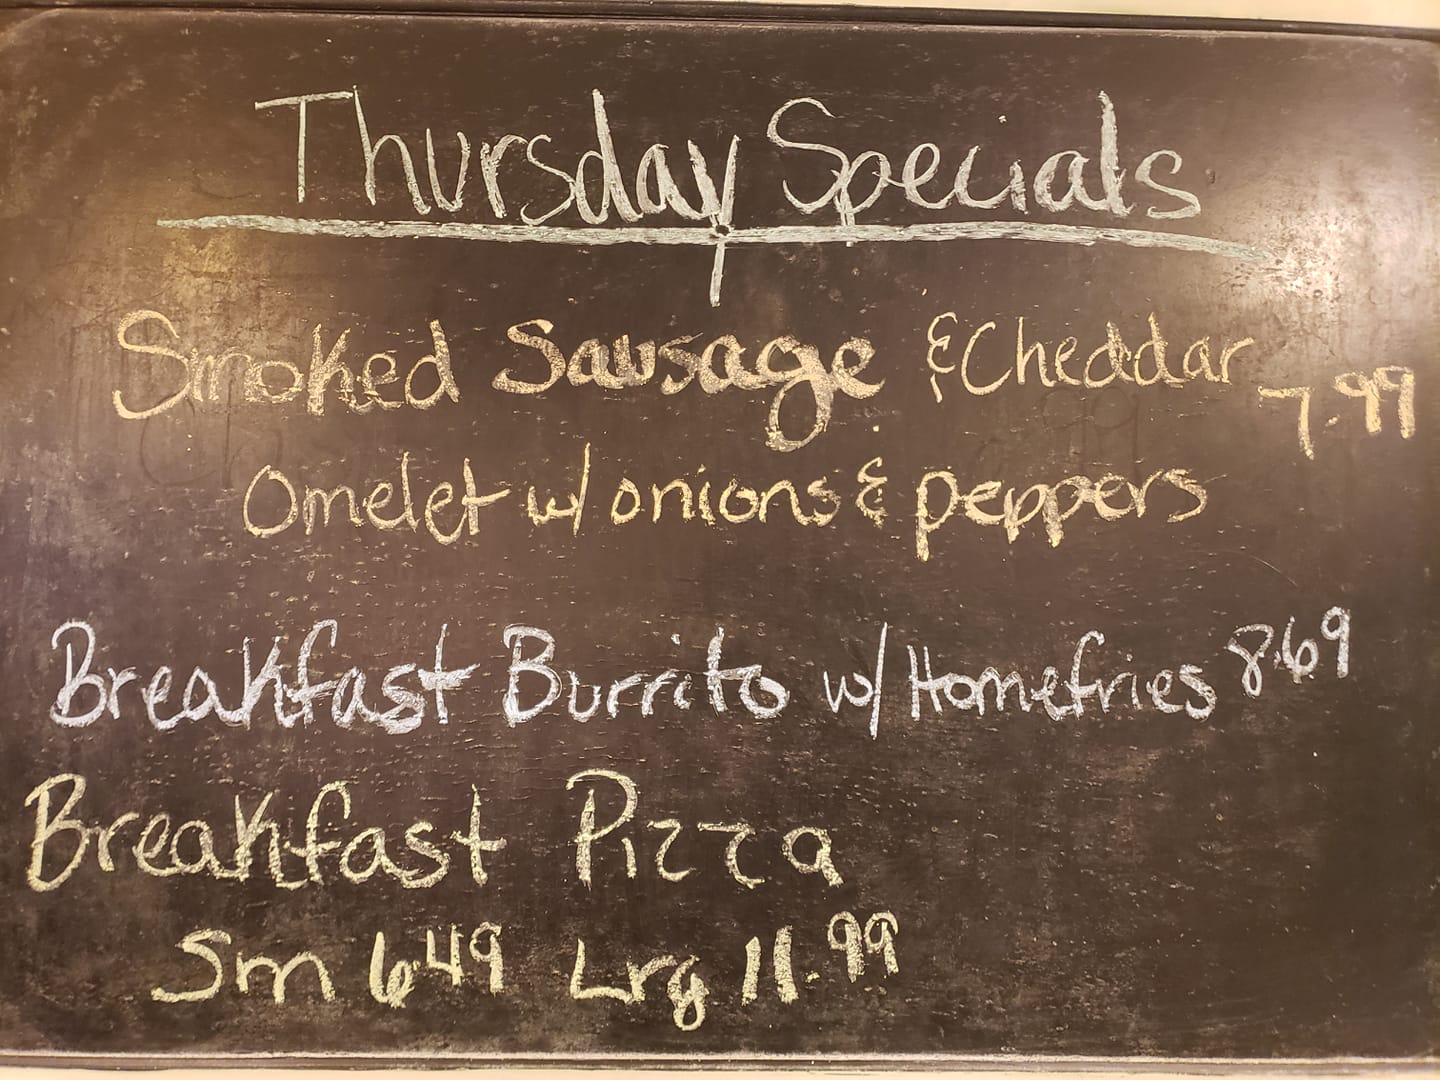 Thursday Specials
Smoked Sausage & Cheddar 7.99
Omelet w/ onions & peppers
Breakfast Burrito w/ Homefries 8.69
Breakfast Pizza
Sm 6.49 Lrg 11.99